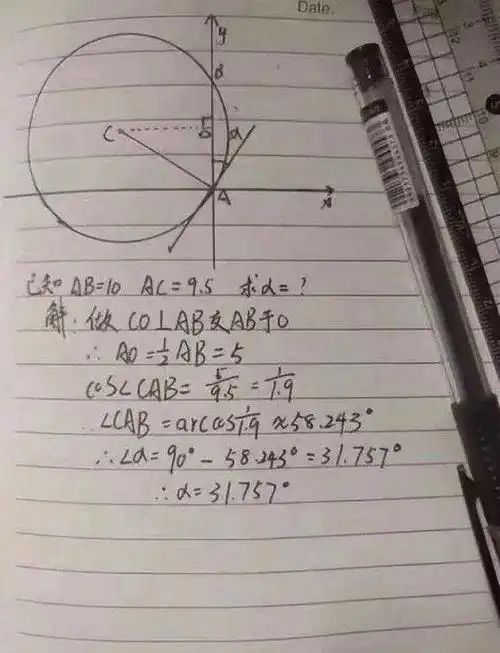 Date.
y
B
C
D
α
A
x
已知 AB=10 AC=9.5 求α=?
解:做 CO⊥AB交AB于O
∴ AO=½AB=5
cos∠CAB=5/9.5=1/1.9
∠CAB=arccos1/1.9≈58.243°
∴∠α=90°-58.243°=31.757°
∴α=31.757°